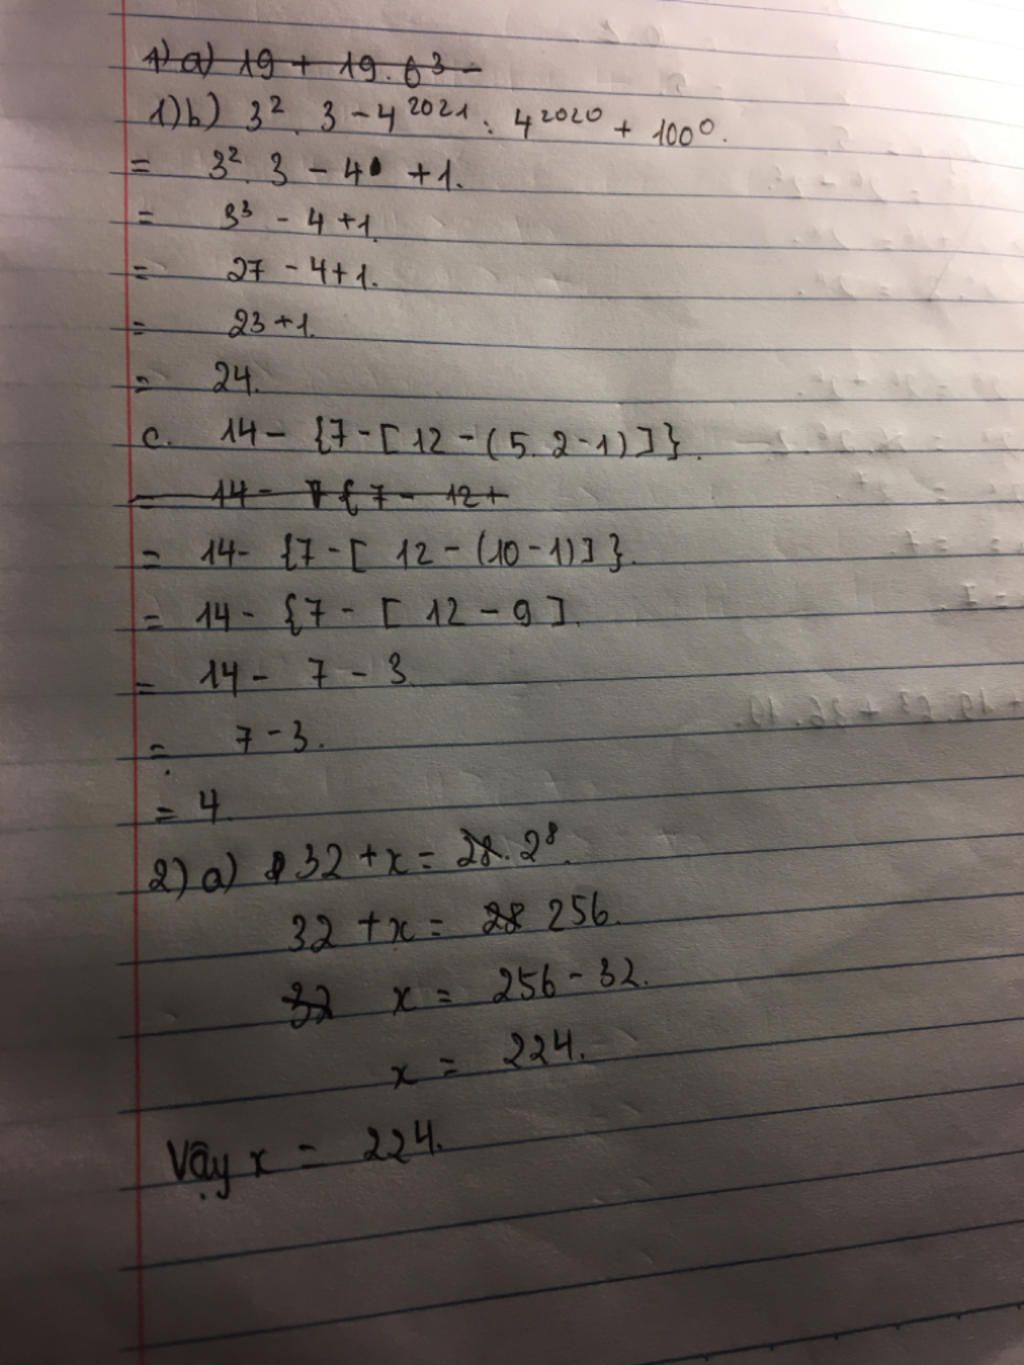 1) a) 19 + 19. 63 -
1) b) 3². 3 - 4²⁰²¹ : 4²⁰²⁰ + 100⁰.
= 3². 3 - 4 + 1.
= 3³ - 4 + 1.
= 27 - 4 + 1.
= 23 + 1.
= 24.
c. 14 - {7 - [ 12 - (5. 2 - 1) ] }.
= 14 - { 7 - 12 +
= 14 - {7 - [ 12 - (10 - 1) ] }.
= 14 - {7 - [ 12 - 9 ].
= 14 - 7 - 3
= 7 - 3.
= 4.
2) a) 32 + x = 28. 2⁸.
32 + x = 28 256.
32 x = 256 - 32.
x = 224.
Vậy x = 224.